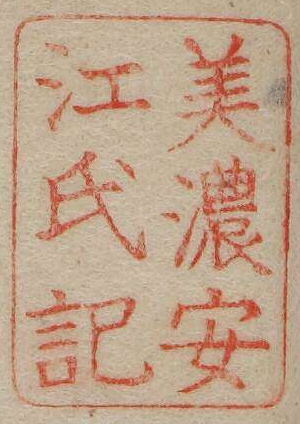 美濃安
江氏記